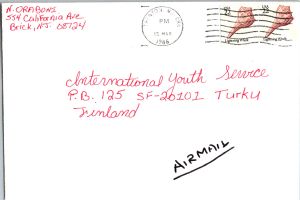 N. ORABONI
554 California Ave
Brick, N.J. 08724
PM
1986
22
USA
22
USA
International Youth Service
P.B. 125 SF-20101 Turku
Finland
AIRMAIL